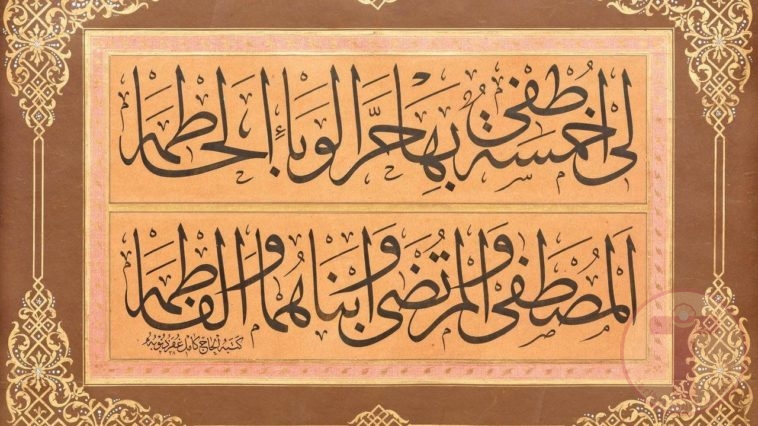 لى خمسة اطفى بها حرَّ الوباءِ الحاطمه
المصطفى والمرتضى وابناهما والفاطمه
كتبه الحاج كامل غفر ذنوبه